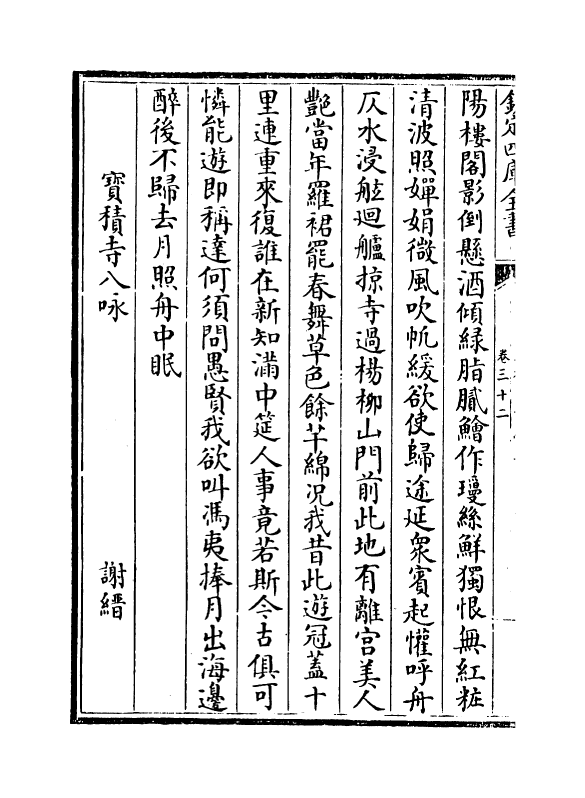 欽定四庫全書
卷三十二
陽樓閣影倒懸酒傾緑脂膩鱠作瓊絲鮮獨恨無紅粧
清波照嬋娟微風吹帆緩欲使歸途延衆賓起懽呼舟
仄水浸舷廻艫掠寺過楊柳山門前此地有離宫美人
艷當年羅裙罷春舞草色餘芊綿况我昔此遊冠蓋十
里連重來復誰在新知滿中筵人事竟若斯今古俱可
憐能遊即稱達何須問愚賢我欲叫馮夷捧月出海邊
醉後不歸去月照舟中眠
寶積寺八咏 謝縉